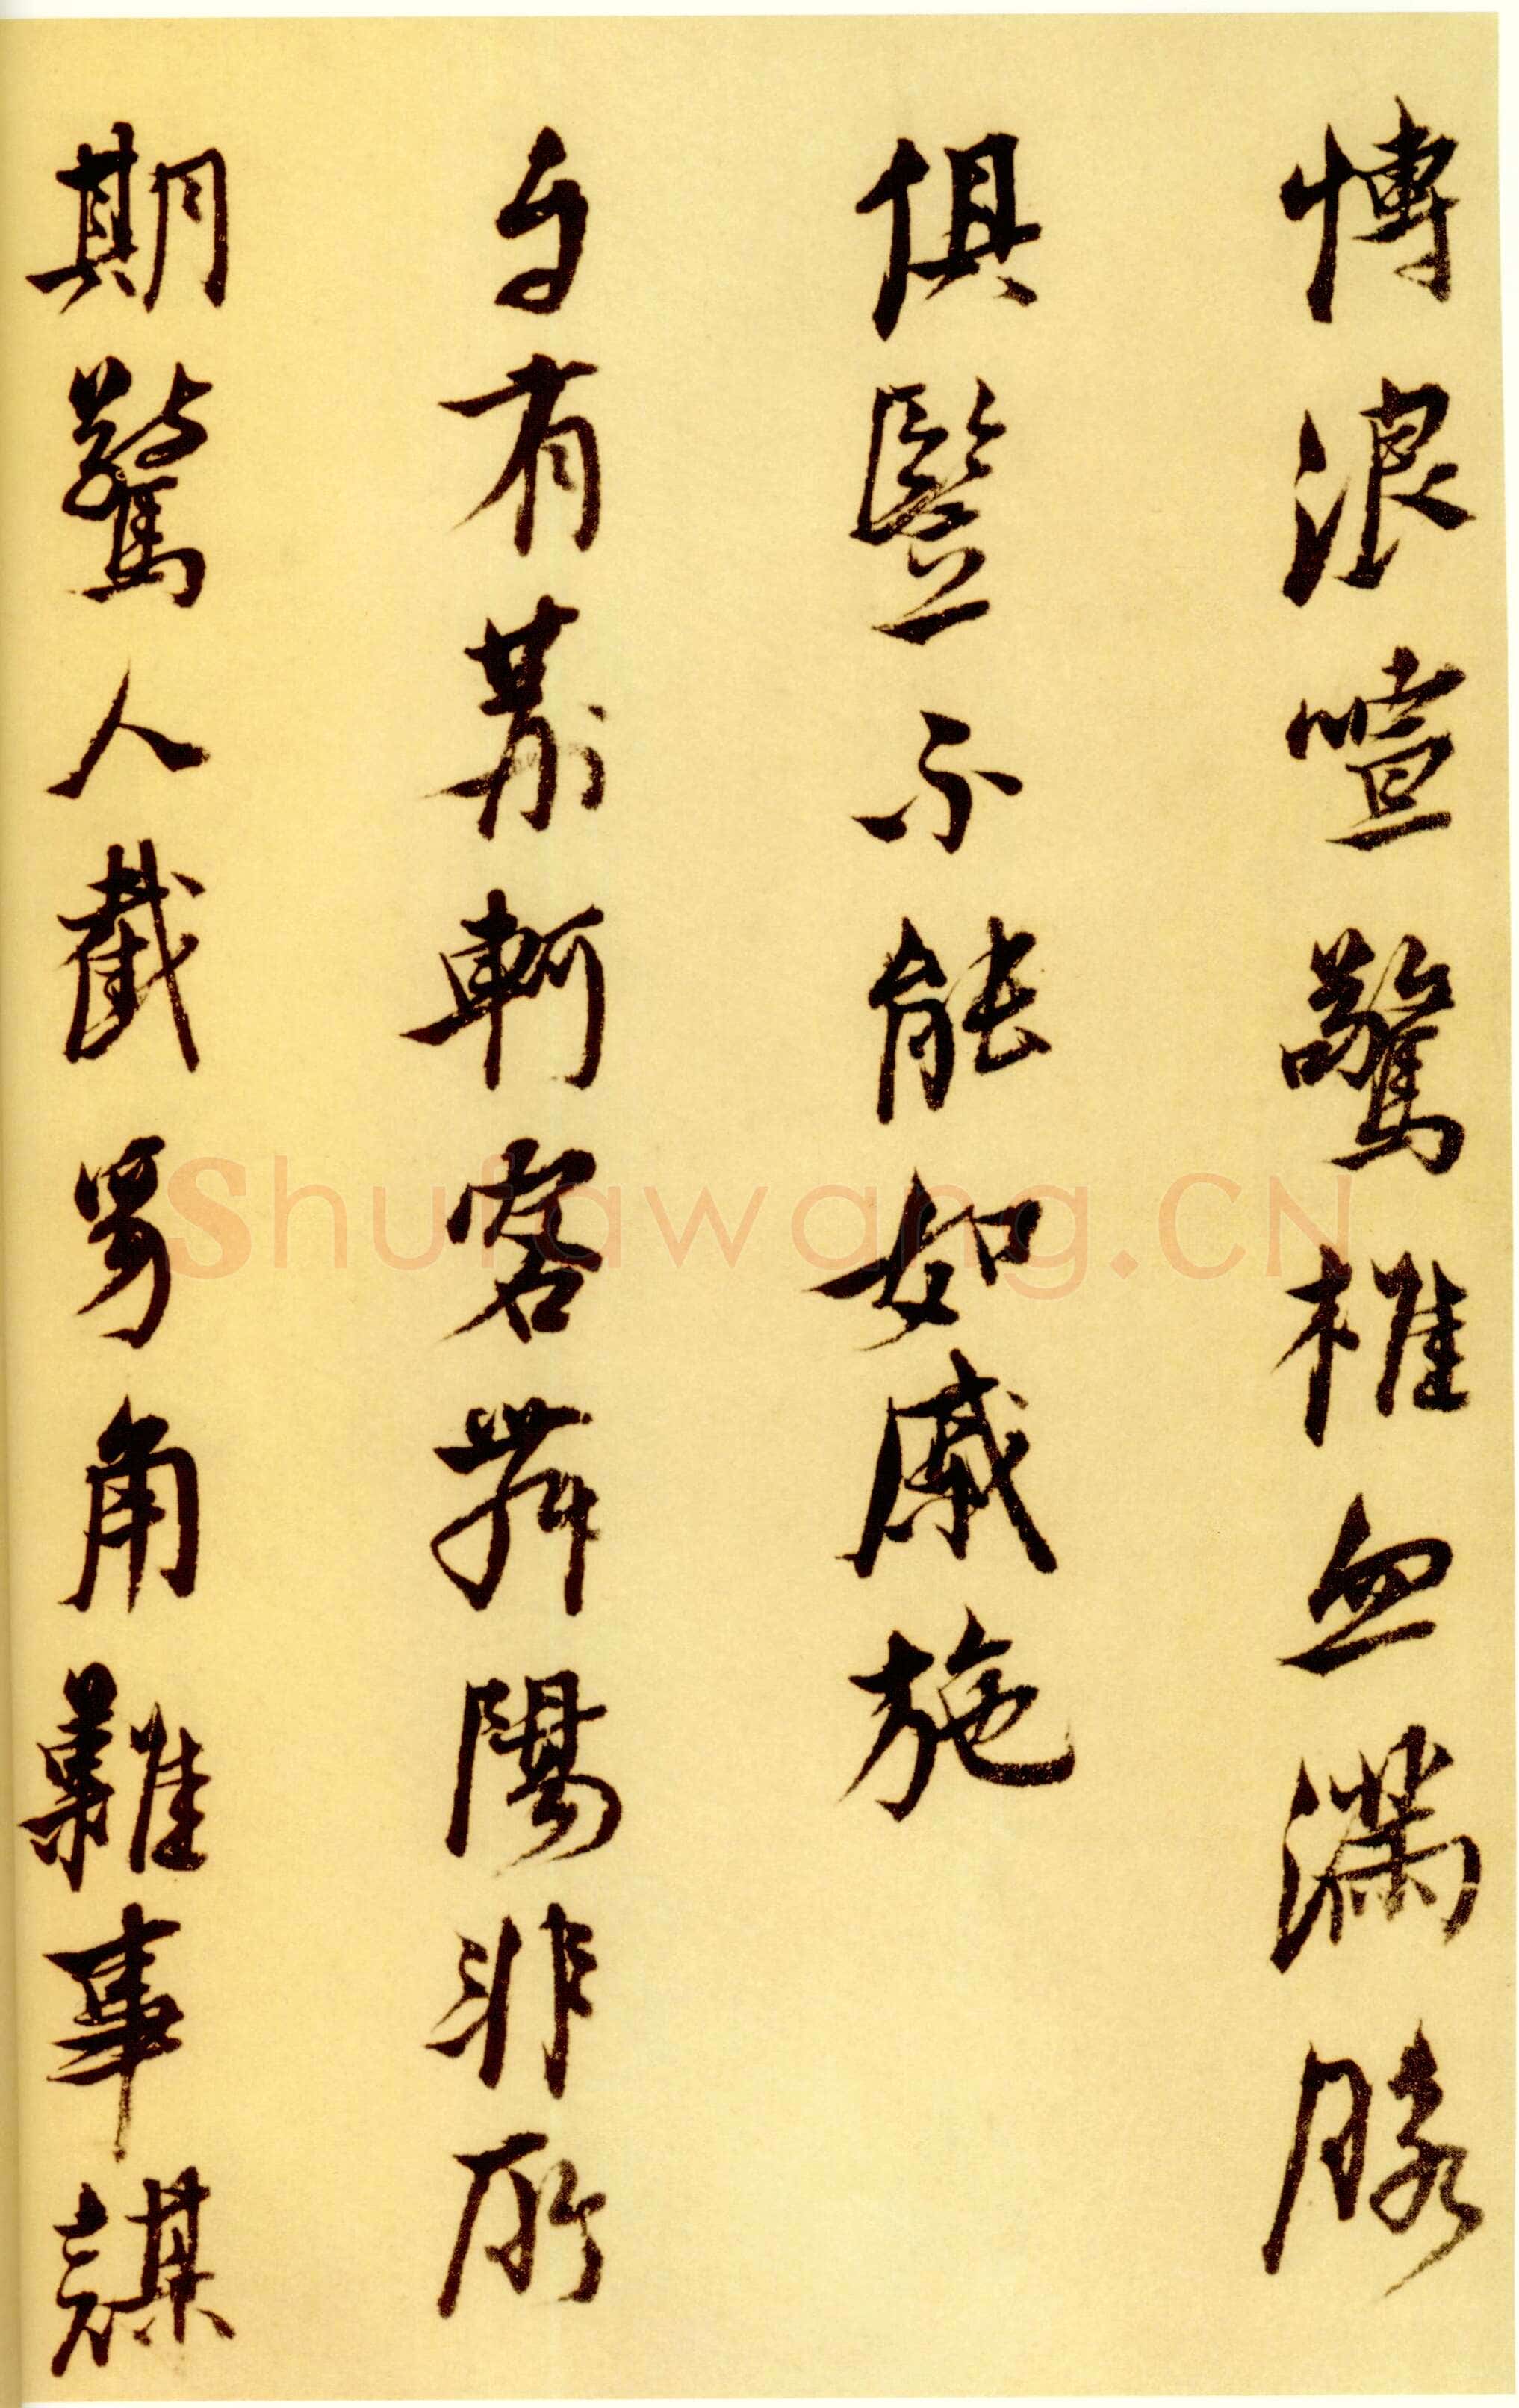 愽浪喧驚椎血滿膝
俱竪不能如戚施
与有荆軻客舞陽非所
期驚人截角難事謀
Shufawang.CN